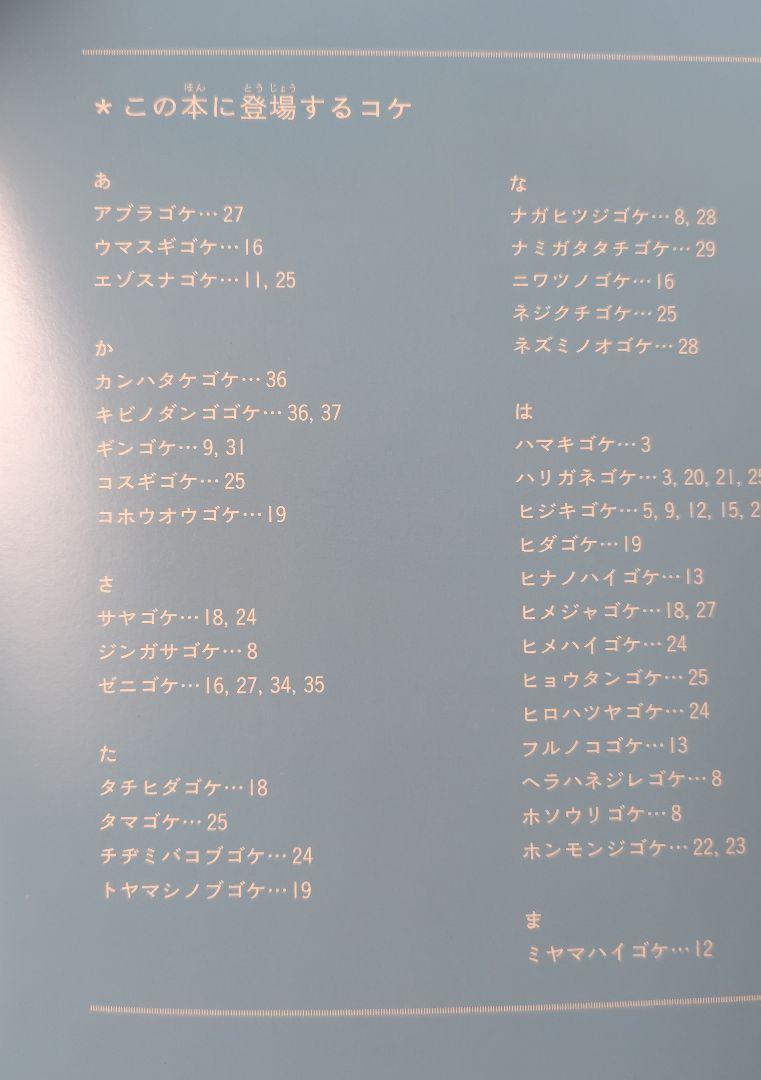 *この本に登場するコケ
ほん
とうじょう
あ
アブラゴケ…27
ウマスギゴケ…16
エゾスナゴケ…11, 25
か
カンハタケゴケ…36
キビノダンゴゴケ…36, 37
ギンゴケ…9, 31
コスギゴケ…25
コホウオウゴケ…19
さ
サヤゴケ…18, 24
ジンガサゴケ…8
ゼニゴケ…16, 27, 34, 35
た
タチヒダゴケ…18
タマゴケ…25
チヂミバコブゴケ…24
トヤマシノブゴケ…19
な
ナガヒツジゴケ…8, 28
ナミガタタチゴケ…29
ニワツノゴケ…16
ネジクチゴケ…25
ネズミノオゴケ…28
は
ハマキゴケ…3
ハリガネゴケ…3, 20, 21, 25
ヒジキゴケ…5, 9, 12, 15, 2
ヒダゴケ…19
ヒナノハイゴケ…13
ヒメジャゴケ…18, 27
ヒメハイゴケ…24
ヒョウタンゴケ…25
ヒロハツヤゴケ…24
フルノコゴケ…13
ヘラハネジレゴケ…8
ホソウリゴケ…8
ホンモンジゴケ…22, 23
ま
ミヤマハイゴケ…12